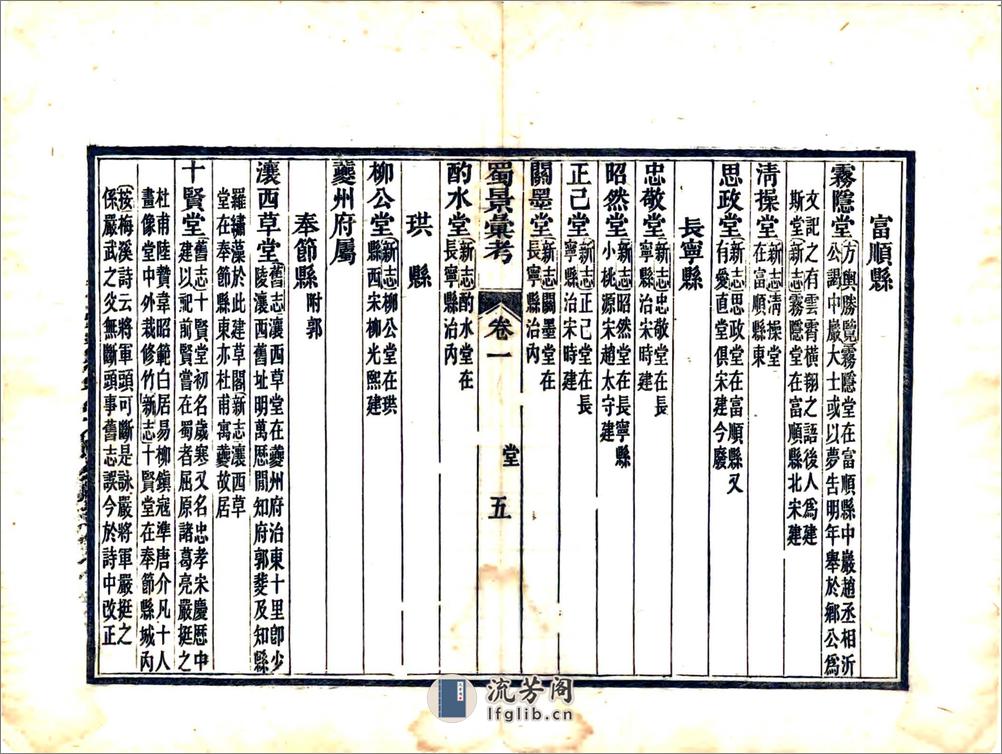 富順縣
霧隱堂 方輿勝覽霧隱堂在富順縣中巖趙丞相沂
公謁中巖大士或以夢告明年舉於鄉公爲
文記之有雲霄橫翔之語後人爲建
斯堂 新志霧隱堂在富順縣北宋建
清操堂 新志清操堂
在富順縣東
思政堂 新志思政堂在富順縣又
有愛直堂俱宋建今廢
長寧縣
忠敬堂 新志忠敬堂在長
寧縣治宋時建
昭然堂 新志昭然堂在長寧縣
小桃源宋趙太守建
正己堂 新志正己堂在長
寧縣治宋時建
闘墨堂 新志闘墨堂在
長寧縣治內
蜀景彙考 卷一 堂 五
酌水堂 新志酌水堂在
長寧縣治內
珙縣
柳公堂 新志柳公堂在珙
縣西宋柳光熙建
夔州府屬
奉節縣 附郭
瀼西草堂 舊志瀼西草堂在夔州府治東十里卽少
陵瀼西舊址明萬歷間知府郭棐及知縣
羅繡藻於此建草閣 新志瀼西草
堂在奉節縣東亦杜甫寓夔故居
十賢堂 舊志十賢堂初名歲寒又名忠孝宋慶歷中
建以記前賢嘗在蜀者屈原諸葛亮嚴挺之
杜甫陸贄韋昭範白居易柳鎮寇準唐介凡十人
畫像堂中外栽修竹 新志十賢堂在奉節縣城內
按梅溪詩云將軍頭可斷是詠嚴將軍嚴挺之
係嚴武之父無斷頭事舊志誤今於詩中改正
流芳阁
lfglib.cn